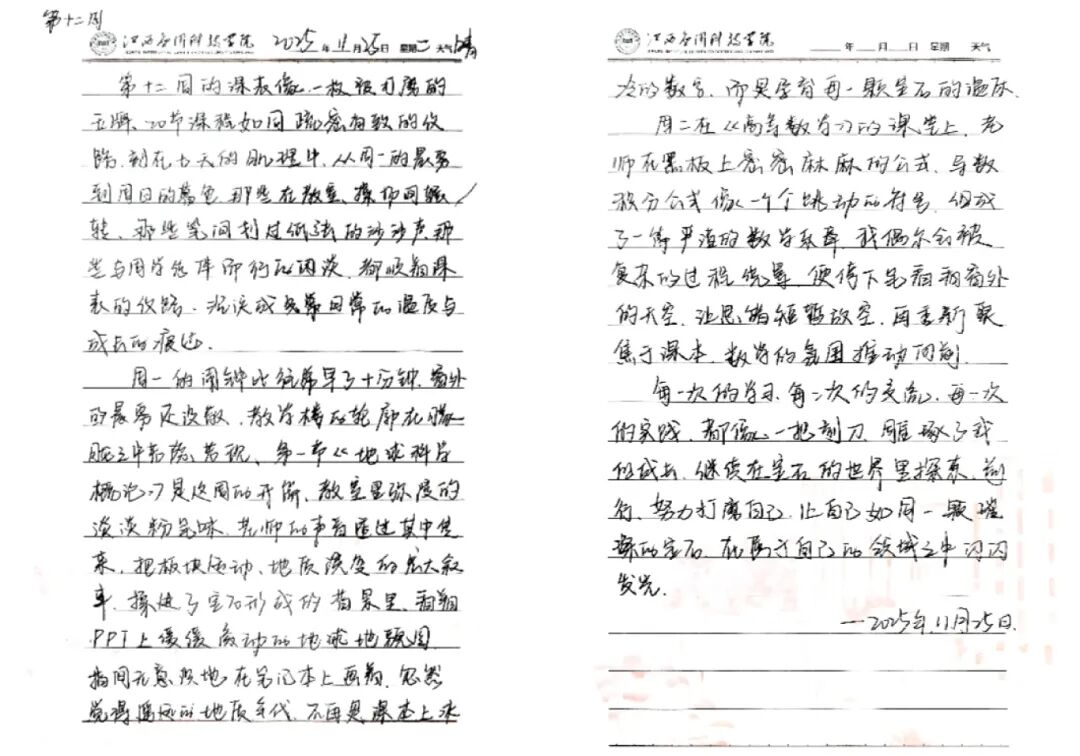 第十二周
江西应用科技学院 2025年11月25日 星期二 天气晴
第十二周的课表像一枚被打磨的
玉牌、20节课程如同疏密有致的纹
路,刻在七天的肌理中,从周一的晨雾
到周日的暮色,那些在教室、操场间辗
转、那些笔间划过纸张的沙沙声,那
些与同学结伴而行的闲谈,都顺着课
表的纹路,沉淀成日常的温度与
成长的痕迹.
周一的闹钟比往常早了十分钟,窗外
的晨雾还没散、教学楼的轮廓在朦
胧之中若隐若现、第一节《地球科学
概论》是这周的开端、教室里弥度的
淡淡粉笔味,老师的声音透过其中传
来,把板块运动、地质演变的宏大叙
事,揉进了宝石形成的背景里,看着
PPT上缓缓转动的地球地貌图
指间无意识地在笔记本上画着,忽然
觉得遥远的地质年代,不再是课本上冰
江西应用科技学院 年 月 日 星期 天气
冷的数字,而是孕育每一颗宝石的温床.
周二在《高等数学》的课堂上,老
师在黑板上密密麻麻的公式,导数
积分公式像一个个跳动的符号,组成
了一篇严谨的数学乐章,我偶尔会被
复杂的过程绕晕,便停下笔看着窗外
的天空,让思绪短暂放空,再重新聚
焦于课本,数学的氛围推动向前.
每一次的学习,每一次的交流,每一次
的实践,都像一把刻刀,雕琢了我
的成长,继续在宝石的世界里探索,前
行,努力打磨自己,让自己如同一颗璀
璨的宝石,在属于自己的领域之中闪闪
发光.
—2025年11月25日.